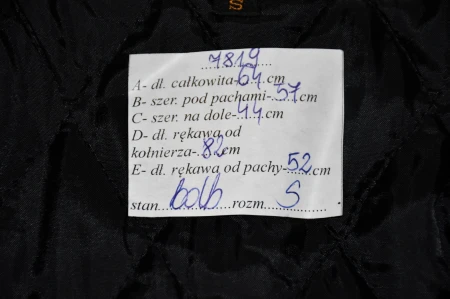 S
7819
A- dł. całkowita-64cm
B- szer. pod pachami-57cm
C- szer. na dole-44cm
D- dł. rękawa od
kołnierza-82cm
E- dł. rękawa od pachy-52cm
stan bdb rozm S